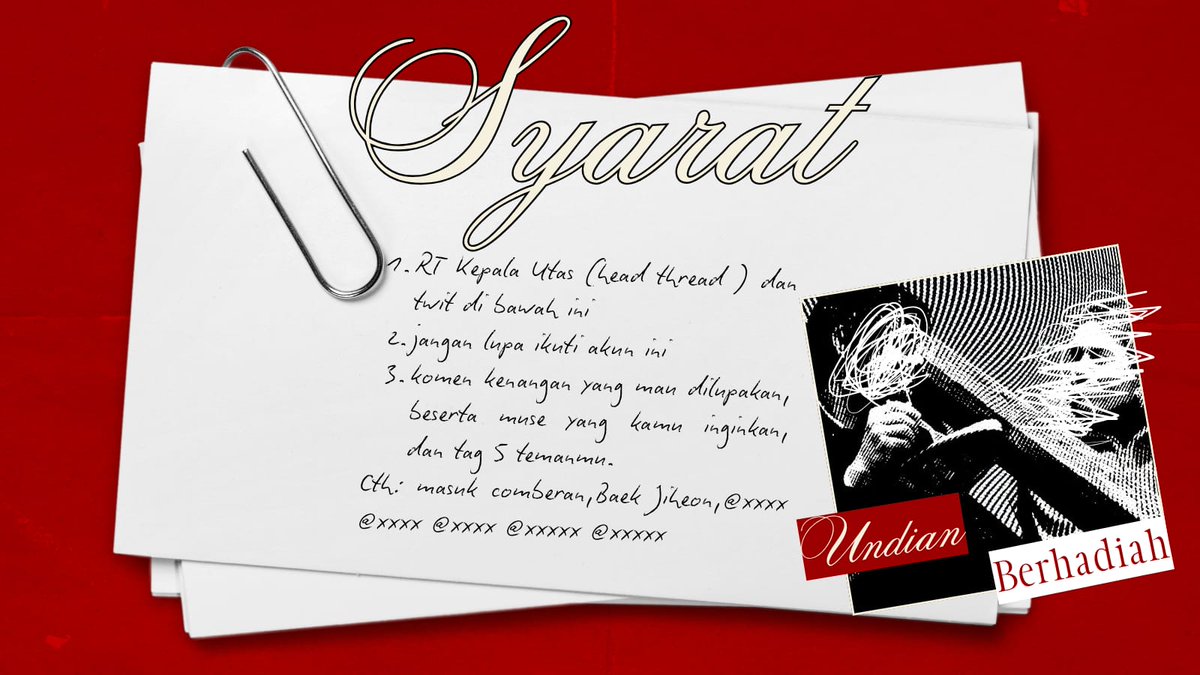 Syarat
1. RT Kepala Utas (head thread) dan
twit di bawah ini
2. jangan lupa ikuti akun ini
3. komen kenangan yang mau dilupakan,
beserta muse yang kamu inginkan,
dan tag 5 temanmu.
Cth: masuk comberan, Baek Jiheon, @xxxx
@xxxx @xxxx @xxxxx @xxxxx
Undian
Berhadiah